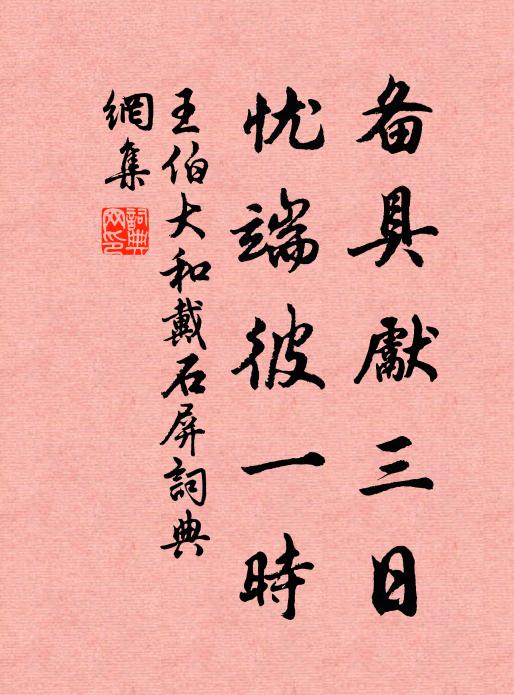 备具獻三日
忧端彼一時
王伯大和戴石屏詞典
網集
詞典網印